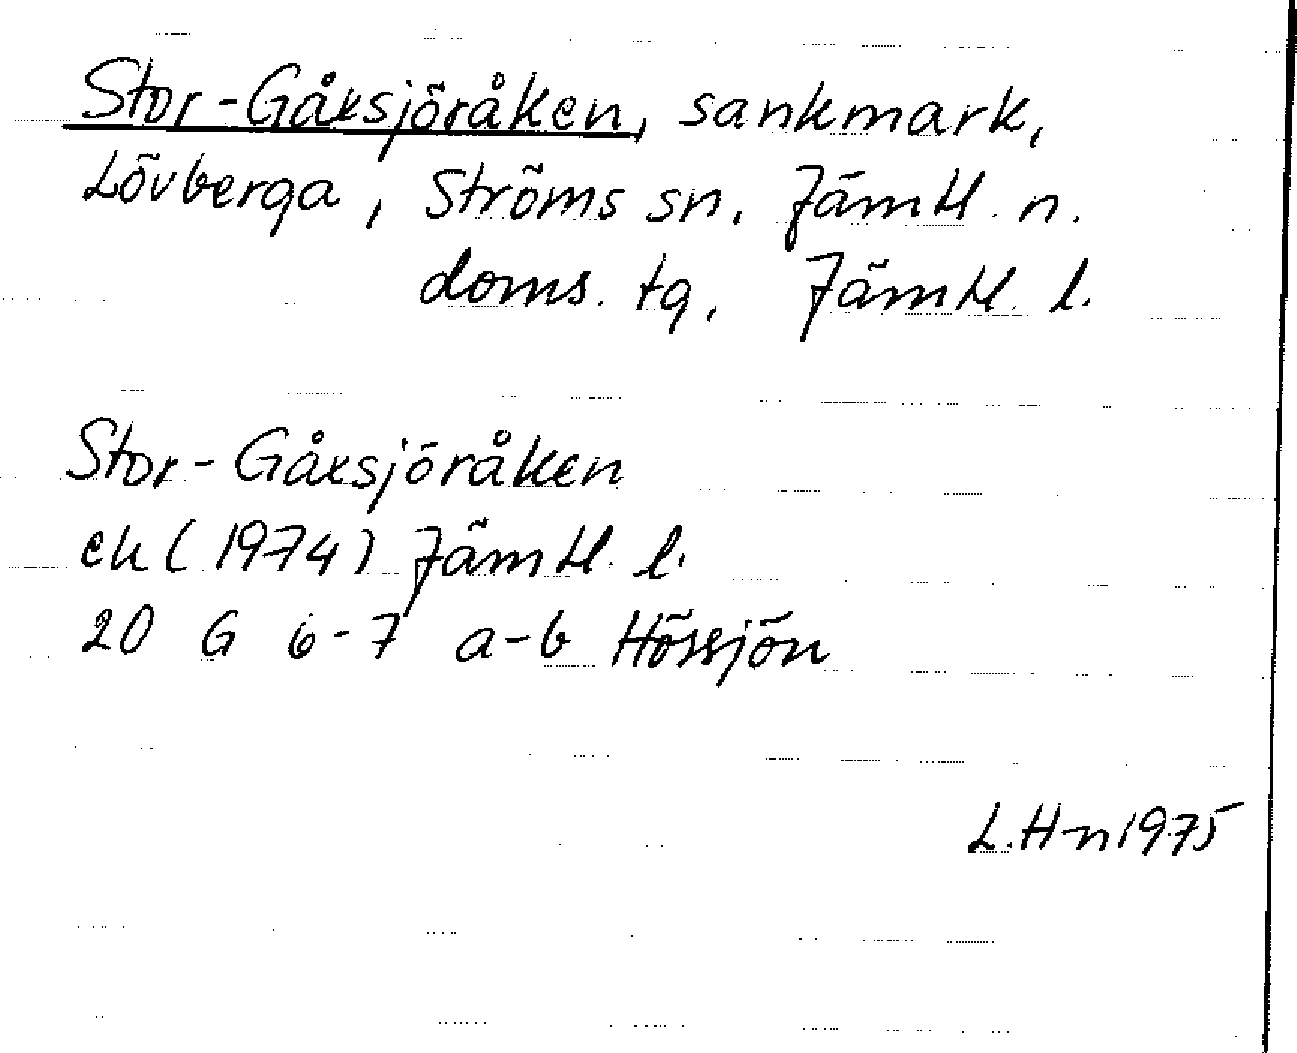 Stor-Gåxsjöråken, sankmark,
Lövberga, Ströms sn, Jämtl. n.
doms. tg, Jämtl. l.
Stor-Gåxsjöråken
ek (1974) Jämtl. l.
20 G 6-7 a-b Hössjön
L.H-n 1975